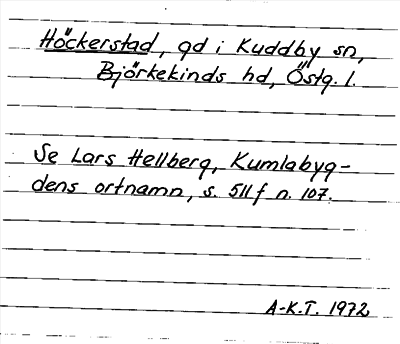 Höckerstad, gd i Kuddby sn,
Björkekinds hd, Östg. l.
Se Lars Hellberg, Kumlabyg-
dens ortnamn, s. 511 f n. 107.
A-K.T. 1972